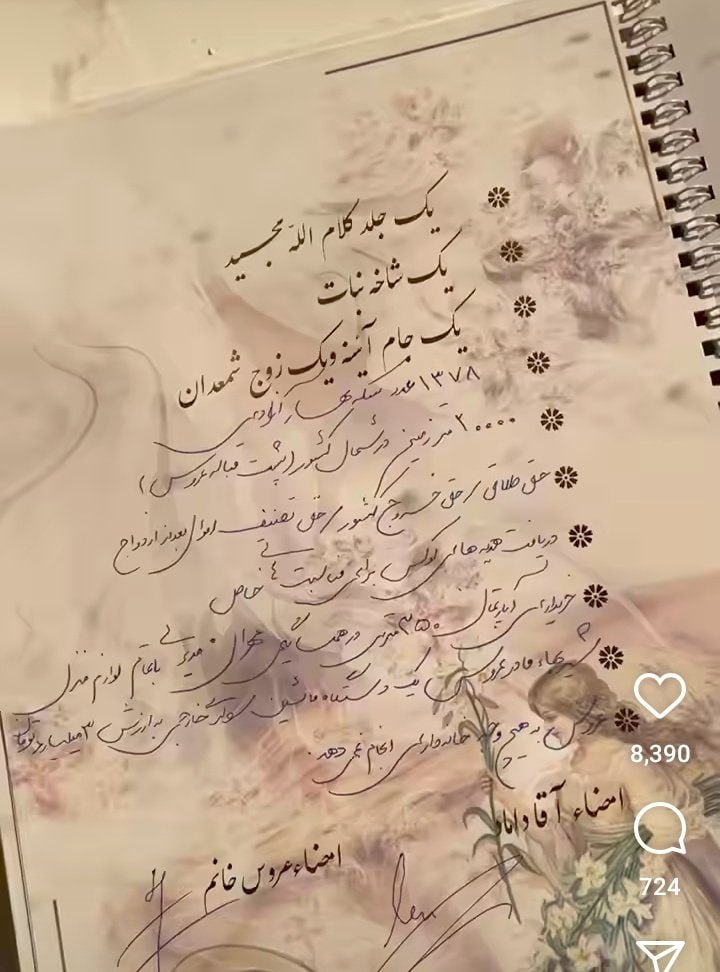 یک جلد کلام الله مجید
یک شاخه نبات
یک جام آئینه و یک زوج شمعدان
۱۳۷۸ عدد سکه بهار آزادی
۲۰۰۰۰ متر زمین در شمال کشور (پشت قباله عروس)
حق طلاق / حق خروج کشور / حق تصنیف اموال بعد از ازدواج
دریافت هدیه های لوکس برای مناسبت های خاص
خریداری آپارتمان ۳۵۰ متری در تهران با تمام لوازم منزل
شیربهاء مادر عروس یک دستگاه ماشین سواری خارجی به ارزش ۳ میلیارد تومان
عروس به هیچ وجه خانه‌داری انجام نمی دهد.
امضاء آقا داماد
امضاء عروس خانم
8,390
724